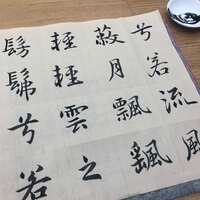 髣髴兮若
輕輕雲之
蔽月飄颻
兮若流風